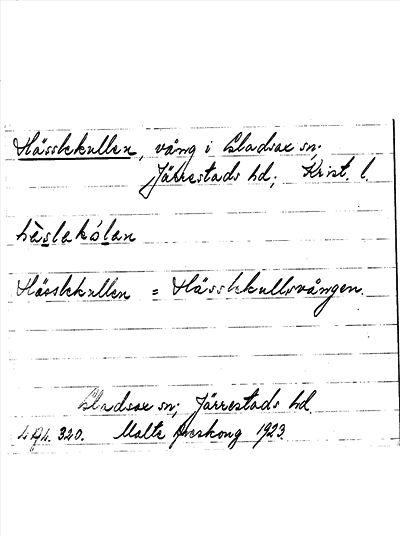 Hässlekullen, vång i Gladsax sn;
Järrestads hd; Krist. l.
hèslakólan
Hässlekullen = Hässlekullsvången.
Gladsax sn; Järrestads hd.
L.A.L. 320. Malte Areskoug 1923.